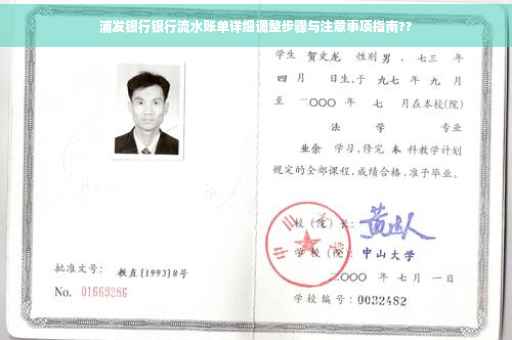 浦发银行银行流水账单详细调整步骤与注意事项指南??
学生 贺文龙 性别 男 、七三 年
四 月 日生,于 九七 年 九 月
至 二〇〇〇 年 七 月在本校(院)
法 学 专业
业余 学习,修完 本 科教学计划
规定的全部课程,成绩合格,准予毕业。
校(院)长:
学校(院): 中山大学
二〇〇〇 年 七 月 一 日
批准文号: 教直[1993]8号
No. 01663286
学校编号: 0032482